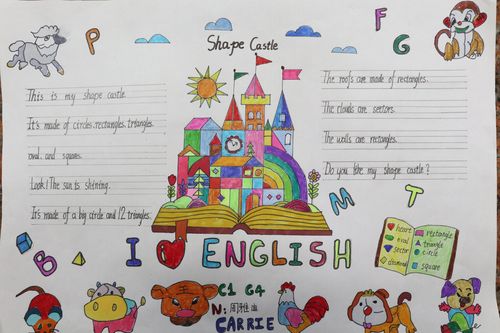 P
F
G
Shape Castle
This is my shape castle.
It's made of circles.rectangles.triangles.
oval. and squares.
Look! The sun is shining.
It's made of a big circle and 12 triangles.
The roofs are made of rectangles.
The clouds are sectors.
The walls are rectangles.
Do you like my shape castle?
M
T
B
I ENGLISH
heart
oval
sector
diamond
rectangle
triangle
circle
square
C1 G4
N:
CARRIE